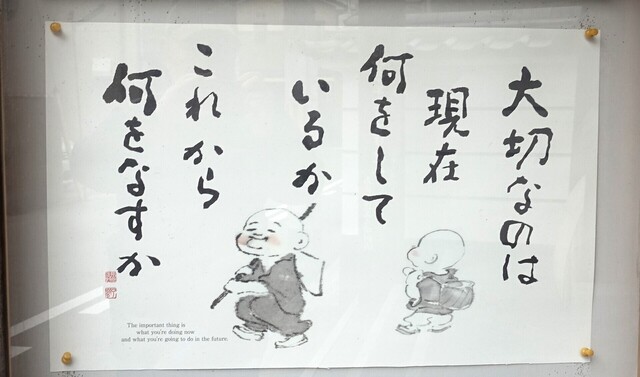 大切なのは
現在
何をして
いるか
これから
何をなすか
The important thing is
what you're doing now
and what you're going to do in the future.